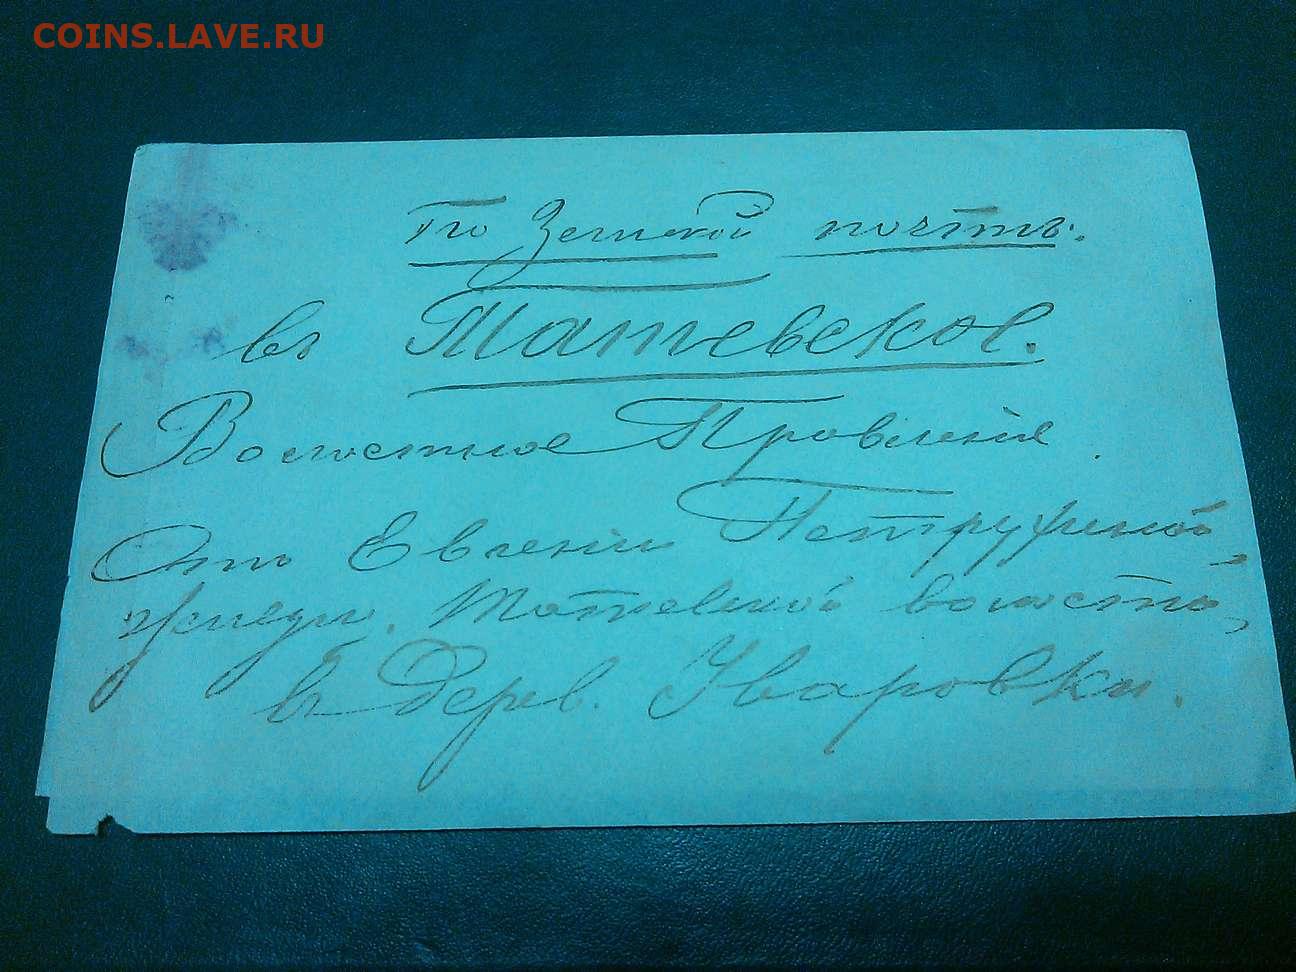 COINS.LAVE.RU
По Земской почтѣ.
въ Татевское.
Волостное Правленіе.
Отъ Евгеніи Петруниной
Татевской волости,
въ дерев. Уваровки.